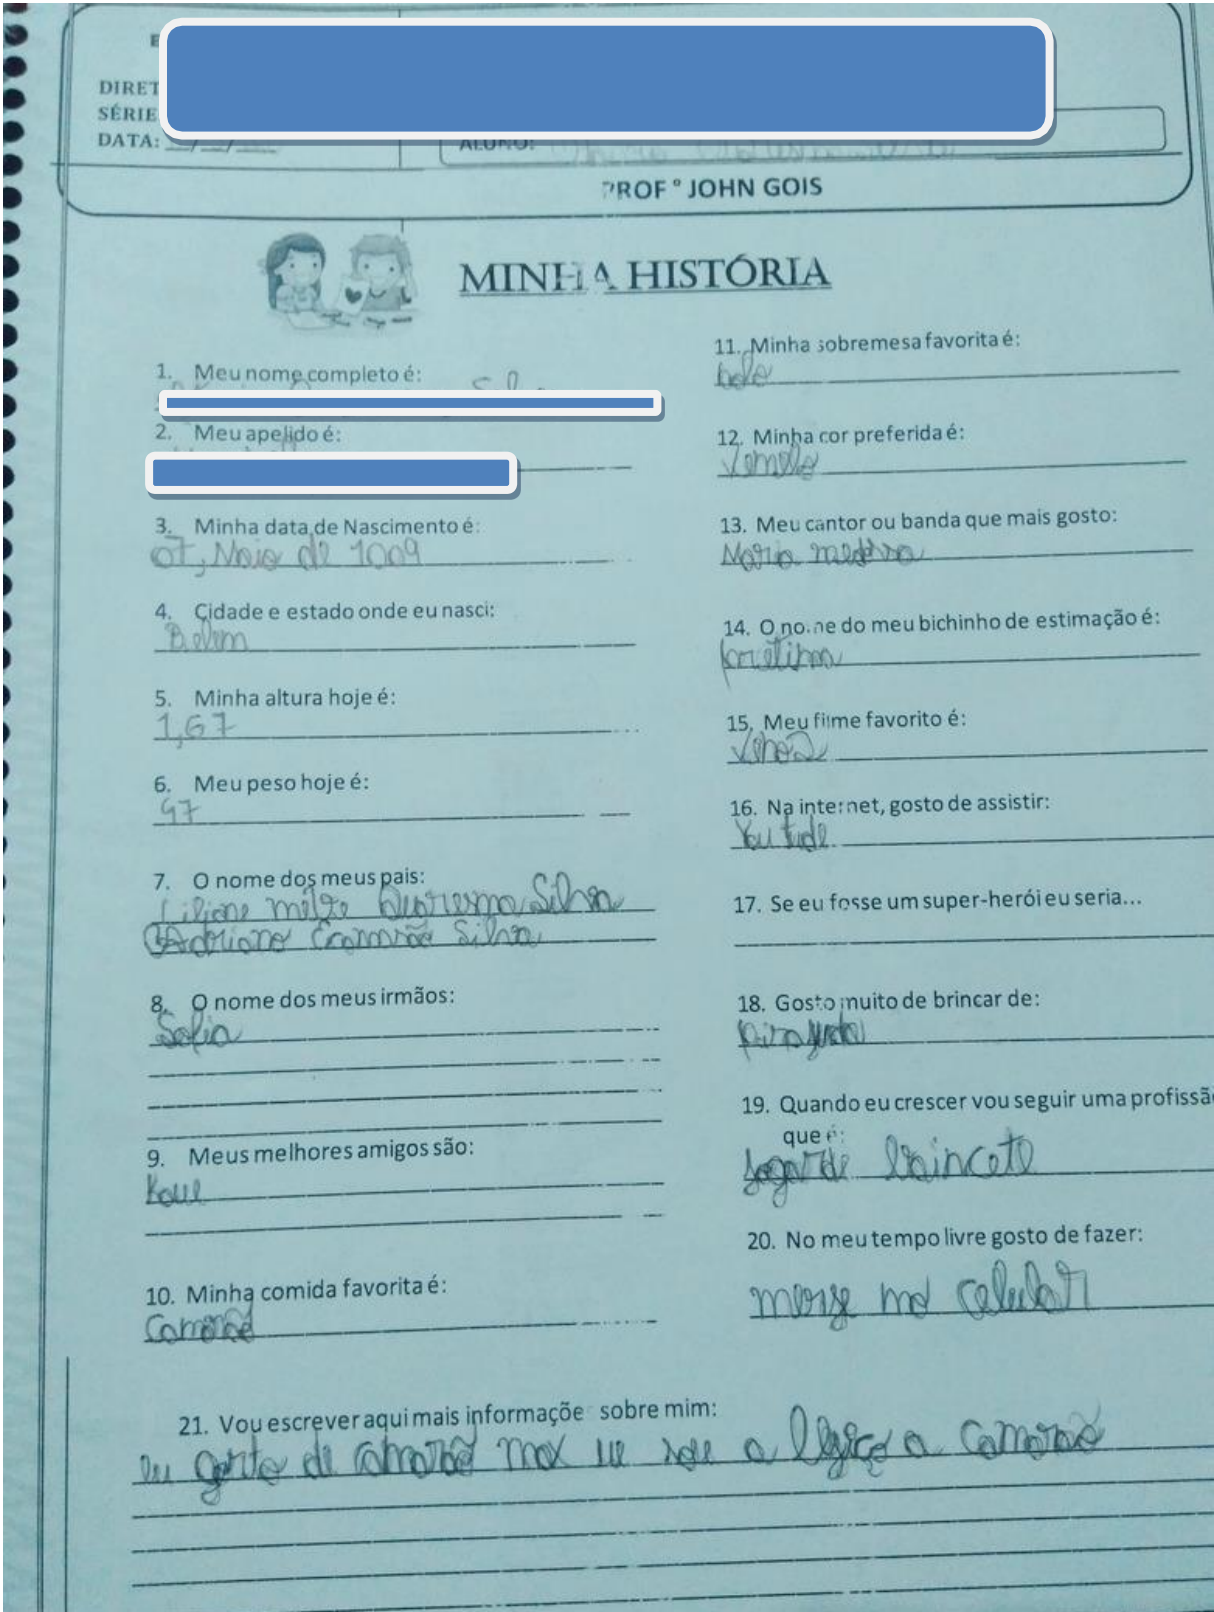 DIRET
SÉRIE
DATA: __/__/__
ALUNO:
PROF° JOHN GOIS
MINHA HISTÓRIA
1. Meu nome completo é:
2. Meu apelido é:
3. Minha data de Nascimento é:
07, Maio de 1009
4. Cidade e estado onde eu nasci:
Belem
5. Minha altura hoje é:
1,67
6. Meu peso hoje é:
47
7. O nome dos meus pais:
Liliane Quaresma Silva
Adriano Silva
8. O nome dos meus irmãos:
Sofia
9. Meus melhores amigos são:
Kaue
10. Minha comida favorita é:
Camarão
11. Minha sobremesa favorita é:
bolo
12. Minha cor preferida é:
13. Meu cantor ou banda que mais gosto:
Maria
14. O nome do meu bichinho de estimação é:
15. Meu filme favorito é:
16. Na internet, gosto de assistir:
You tude
17. Se eu fosse um super-herói eu seria...
18. Gosto muito de brincar de:
19. Quando eu crescer vou seguir uma profissão
que é:
20. No meu tempo livre gosto de fazer:
celular
21. Vou escrever aqui mais informaçõe sobre mim:
eu gosto de camarão a camarão